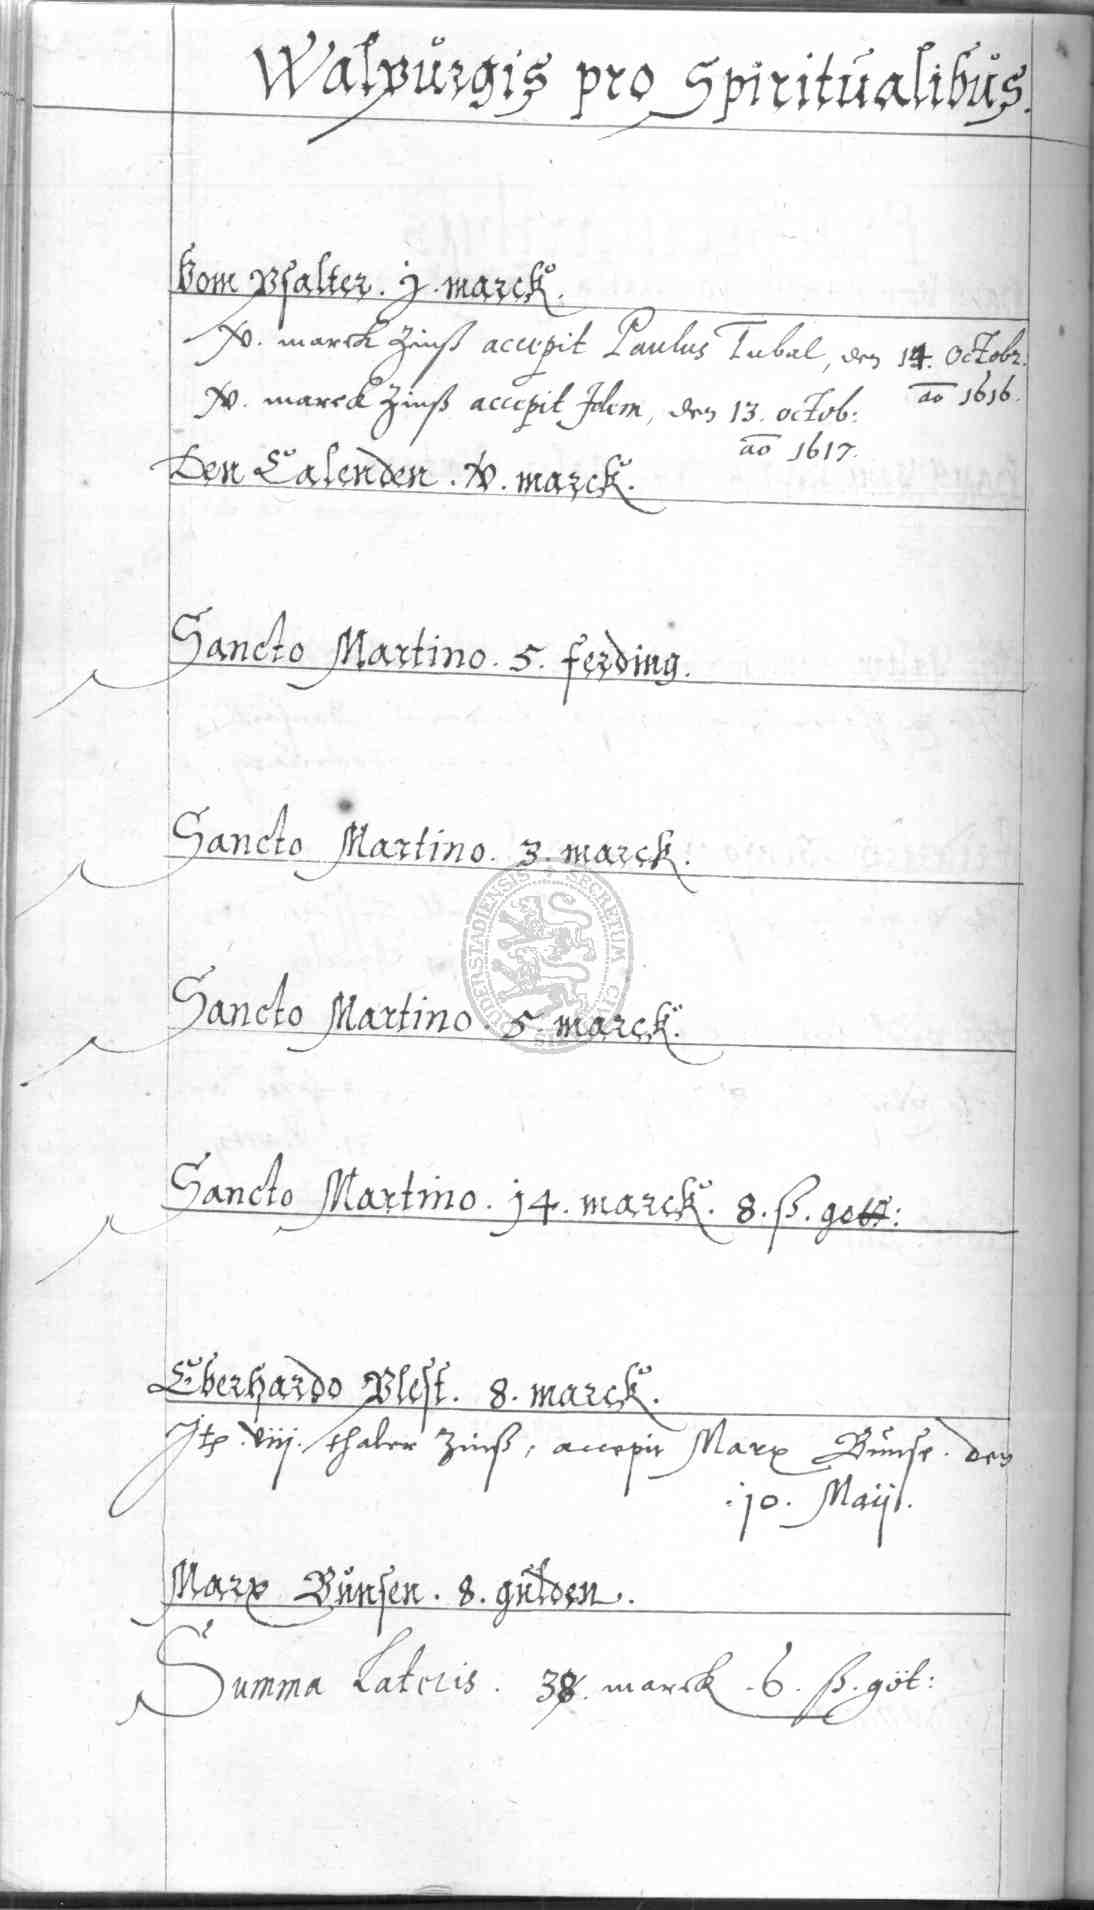 Walpurgis pro Spiritualibus.
Vom Psalter. j. marck.
v. marck Zinß accepit Paulus Tubal, den 14. Octobr.
ao 1616.
v. marck Zinß accepit Idem, den 13. octob:
ao 1617.
Den Calenden. v. marck.
Sancto Martino. 5. ferding.
Sancto Martino. 3. marck.
SECRETUM
Sancto Martino. 5. marck.
Sancto Martino. j4. marck. 8. ß. gott:
Eberhardo Blest. 8. marck.
Jtp. viij. thaler Zinß, accepit Marx Bünse. den
.j0. Maij.
Marx Bünsen. 8. gülden.
Summa Lateris. 38. marck. 6. ß. göt: